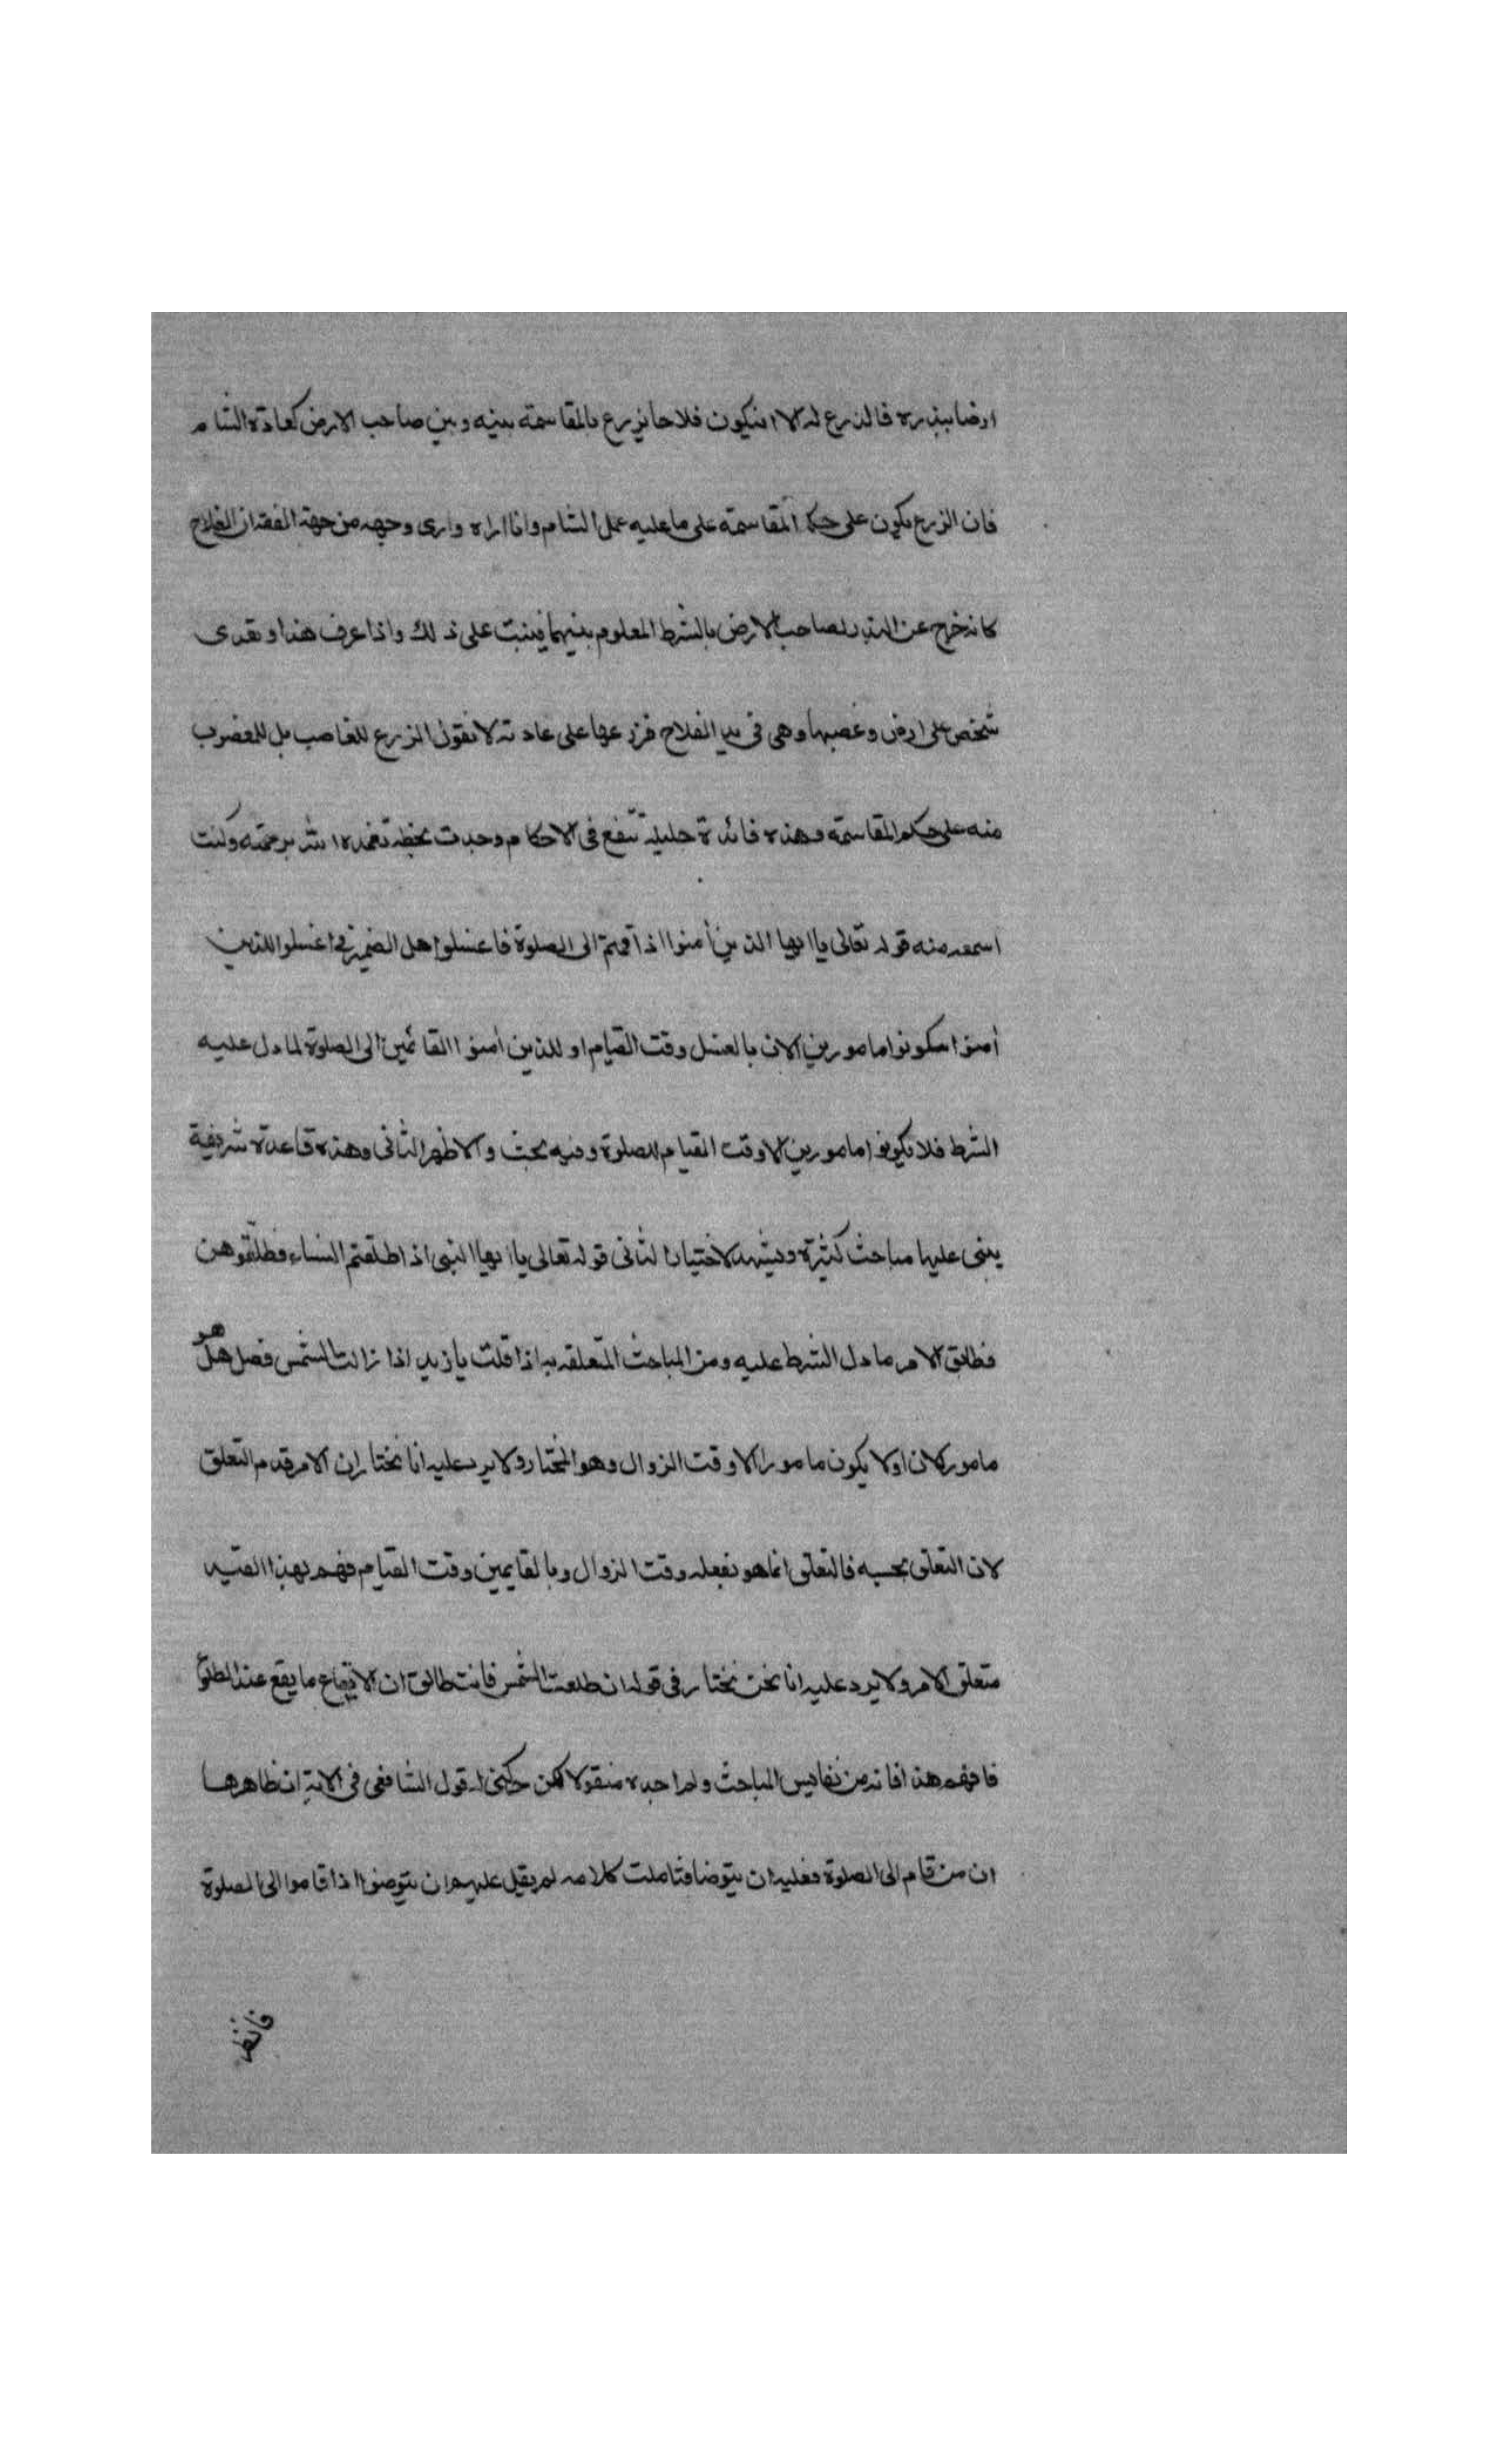 ارضا ببذره فالزرع له الا ان يكون فلاحا يزرع بالمقاسمة بينه وبين صاحب الارض كعادة الشام
فان الزرع يكون على حكم المقاسمة على ما عليه عمل الشام وانا اراه وارى وجهه من جهة الفقه ان الفلاح
كانه خرج عن البذر لصاحب الارض بالشرط المعلوم بينهما فيثبت على ذلك واذا عرف هذا وتعدى
شخص على ارض وغصبها وهى فى يد الفلاح فزرعها على عادته لا نقول الزرع للغاصب بل للمغصوب
منه على حكم المقاسمة وهذه فائدة جليلة تنفع فى الاحكام وجدت بخطه تغمده الله برحمته وكنت
اسمعه منه قوله تعالى يا ايها الذين أمنوا اذا قمتم الى الصلوة فاغسلوا هل الضمير فى اغسلوا للذين
أمنوا فيكونوا مامورين الان بالغسل وقت القيام او للذين أمنوا القائمين الى الصلوة لما دل عليه
الشرط فلا يكونوا مامورين الا وقت القيام للصلوة وفيه بحث والاظهر الثانى وهذه قاعدة شريفة
يبنى عليها مباحث كثيرة ويشهد لاختيار الثانى قوله تعالى يا ايها النبى اذا طلقتم النساء فطلقوهن
فطابق الامر ما دل الشرط عليه ومن المباحث المتعلقه به اذا قلت يا زيد اذا زالت الشمس فصل هل هو
مامور الان او لا يكون مامورا الا وقت الزوال وهو المختار ولا يرد عليه انا نختار ان الامر قديم التعلق
لان التعلق بحسبه فالتعلق انما هو بفعله وقت الزوال وبالقايمين وقت القيام فهم بهذا القيد
متعلق الامر ولا يرد عليه انا نحن نختار فى قوله ان طلعت الشمس فانت طالق ان الايقاع ما يقع عند الطلوع
فافهم هذا فانه من نفايس المباحث ولم اجده منقولا لكن حركنى له قول الشافعى فى الاية ان ظاهرها
ان من قام الى الصلوة فعليه ان يتوضا فتاملت كلامه لم يقل عليهم ان يتوضوا اذا قاموا الى الصلوة
فانظر